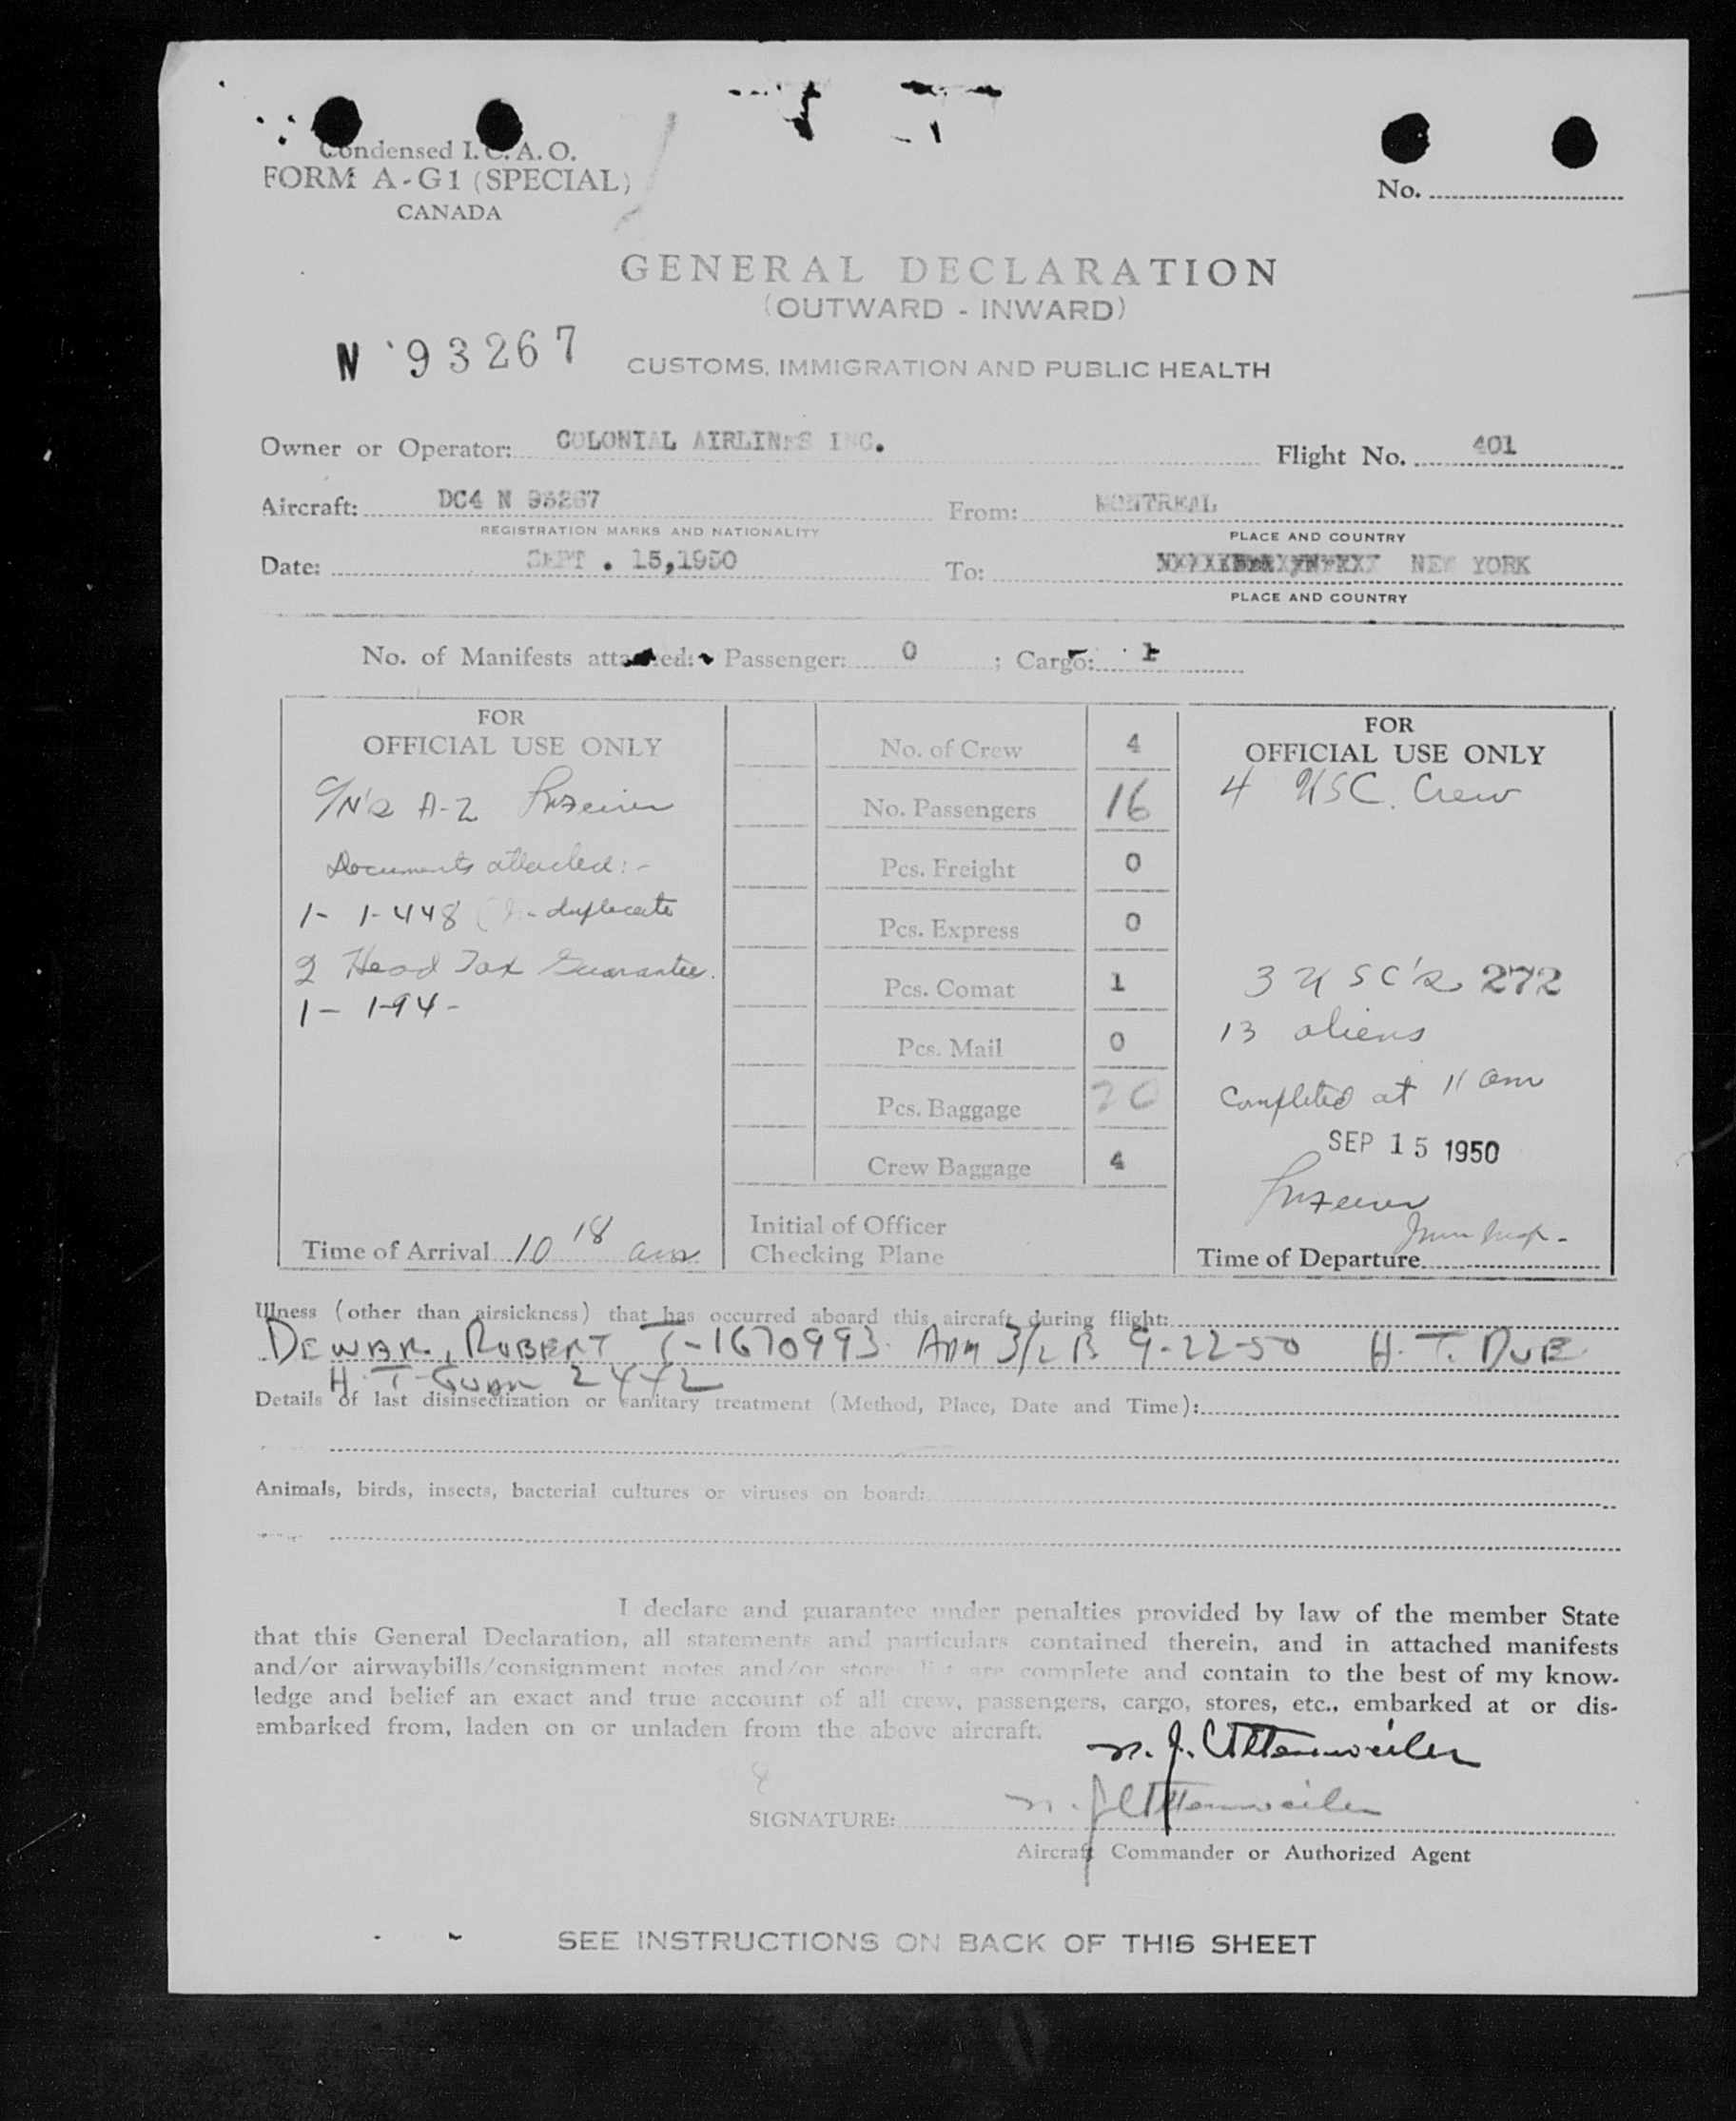 Condensed I. C. A. O.
FORM A-G1 (SPECIAL)
CANADA
No.
GENERAL DECLARATION
(OUTWARD - INWARD)
N 93267
CUSTOMS, IMMIGRATION AND PUBLIC HEALTH
Owner or Operator: COLONIAL AIRLINES INC. Flight No. 401
Aircraft: DC4 N 93267 From: MONTREAL
REGISTRATION MARKS AND NATIONALITY PLACE AND COUNTRY
Date: SEPT . 15,1950 To: NEW YORK
PLACE AND COUNTRY
No. of Manifests attached: Passenger: 0 ; Cargo: 1
FOR
OFFICIAL USE ONLY
A-2
Documents attached:-
1- 1-448 duplicate
2 Head Tax Guarantee.
1- 1-94-
Time of Arrival 10 18 am
No. of Crew 4
No. Passengers 16
Pcs. Freight 0
Pcs. Express 0
Pcs. Comat 1
Pcs. Mail 0
Pcs. Baggage 20
Crew Baggage 4
Initial of Officer
Checking Plane
FOR
OFFICIAL USE ONLY
4 USC. Crew
3 USC's 272
13 aliens
Completed at 11 am
SEP 15 1950
Time of Departure
Illness (other than airsickness) that has occurred aboard this aircraft during flight:
DEWAR, ROBERT T-1670993 ADM 3/2 B 9-22-50 H. T. DUE
H. T. GUAR 2442
Details of last disinsectization or sanitary treatment (Method, Place, Date and Time):
Animals, birds, insects, bacterial cultures or viruses on board:
I declare and guarantee under penalties provided by law of the member State
that this General Declaration, all statements and particulars contained therein, and in attached manifests
and/or airwaybills/consignment notes and/or stores list are complete and contain to the best of my know-
ledge and belief an exact and true account of all crew, passengers, cargo, stores, etc., embarked at or dis-
embarked from, laden on or unladen from the above aircraft.
N. J. Uttenweiler
N. J. Uttenweiler
SIGNATURE:
Aircraft Commander or Authorized Agent
SEE INSTRUCTIONS ON BACK OF THIS SHEET